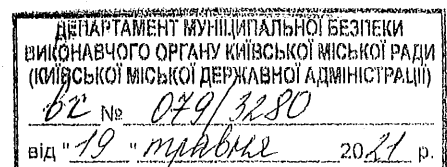 ДЕПАРТАМЕНТ МУНІЦИПАЛЬНОЇ БЕЗПЕКИ
ВИКОНАВЧОГО ОРГАНУ КИЇВСЬКОЇ МІСЬКОЇ РАДИ
(КИЇВСЬКОЇ МІСЬКОЇ ДЕРЖАВНОЇ АДМІНІСТРАЦІЇ)
вс № 079/3280
від "19" травня 2021 р.